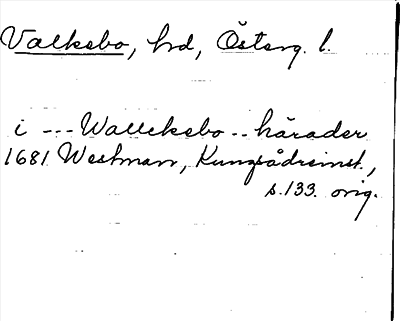 Valkebo, hd, Österg. l.
i --- Walleksbo -- härader
1681 Westman, Kungsådreinst.,
s.133. orig.